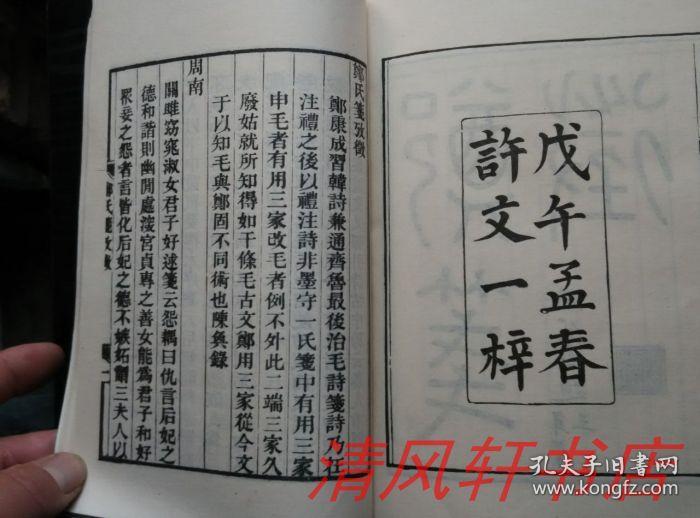 戊午孟春
許文一梓
鄭氏箋攷徵
鄭康成習韓詩兼通齊魯最後治毛詩箋詩乃在
注禮之後以禮注詩非墨守一氏箋中有用三家
申毛者有用三家改毛者例不外此二端三家久
廢姑就所知得如干條毛古文鄭用三家從今文
于以知毛與鄭固不同術也陳奐錄
周南
關雎窈窕淑女君子好逑箋云怨耦曰仇言后妃之
德和諧則幽閒處深宮貞專之善女能爲君子和好
眾妾之怨者言皆化后妃之德不嫉妬謂三夫人以
鄭氏箋攷徵
清风轩书店
孔夫子旧书网
www.kongfz.com